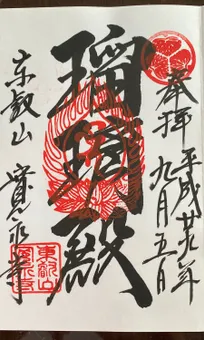 奉拝
平成廿九年
九月五日
瑠璃殿
東叡山
寛永寺
東叡山
寛永寺